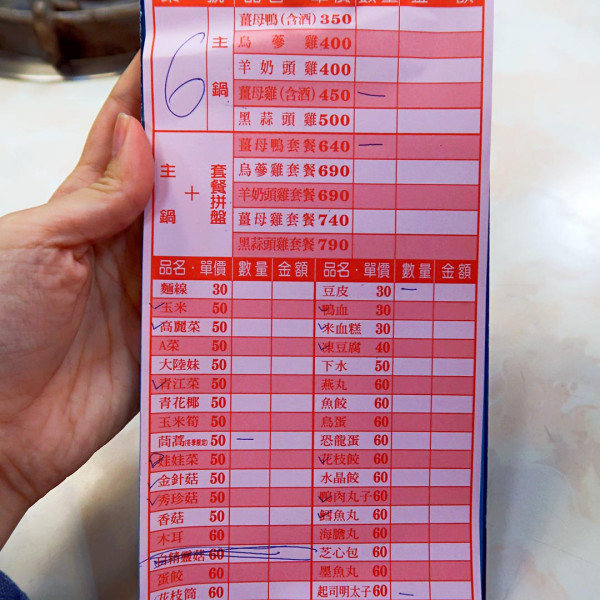 品名 單價 數量 金額
6
主鍋
薑母鴨(含酒) 350
烏蔘雞 400
羊奶頭雞 400
薑母雞(含酒) 450 一
黑蒜頭雞 500
主鍋 + 套餐拼盤
薑母鴨套餐 640 一
烏蔘雞套餐 690
羊奶頭雞套餐 690
薑母雞套餐 740
黑蒜頭雞套餐 790
品名・單價 數量 金額 品名・單價 數量 金額
麵線 30 豆皮 30 一
玉米 50 鴨血 30
高麗菜 50 米血糕 30
A菜 50 凍豆腐 40
大陸妹 50 下水 50
青江菜 50 燕丸 60
青花椰 50 魚餃 60
玉米筍 50 鳥蛋 60
茼蒿(冬季限定) 50 一 恐龍蛋 60
娃娃菜 50 花枝餃 60
金針菇 50 水晶餃 60
秀珍菇 50 鴨肉丸子 60
香菇 50 鱈魚丸 60
木耳 60 海膽丸 60
白精靈菇 60 芝心包 60
蛋餃 60 墨魚丸 60
花枝筒 60 起司明太子 60 一